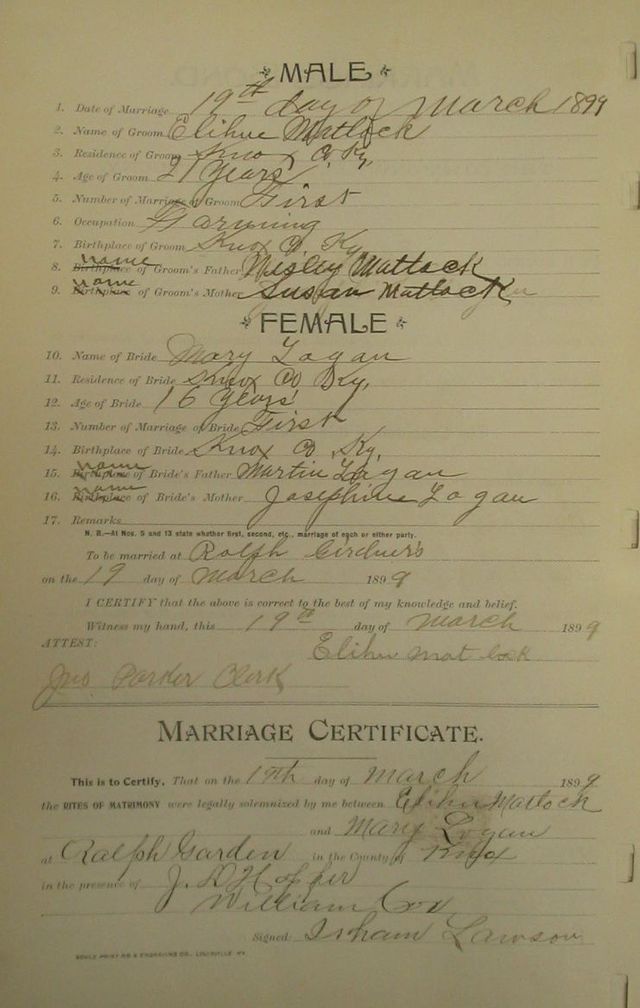 MALE
1. Date of Marriage 19th day of March 1899
2. Name of Groom Elihue Matlock
3. Residence of Groom Knox Co Ky,
4. Age of Groom 21 Years
5. Number of Marriage of Groom First
6. Occupation Farming
7. Birthplace of Groom Knox Co Ky
8. Birthplace name of Groom's Father Wesley Matlock
9. Birthplace name of Groom's Mother Susan Matlock
FEMALE
10. Name of Bride Mary Logan
11. Residence of Bride Knox Co Ky,
12. Age of Bride 16 Years
13. Number of Marriage of Bride First
14. Birthplace of Bride Knox Co, Ky,
15. Birthplace name of Bride's Father Martin Logan
16. Birthplace name of Bride's Mother Josephine Logan
17. Remarks
N. B.—At Nos. 5 and 13 state whether first, second, etc., marriage of each or either party.
To be married at Ralph Girdner's
on the 19 day of March 1899
I CERTIFY that the above is correct to the best of my knowledge and belief.
Witness my hand, this 19th day of March 1899
ATTEST: Elihu Mat lock
Jno Parker Clerk
MARRIAGE CERTIFICATE.
This is to Certify, That on the 19th day of March 1899
the RITES OF MATRIMONY were legally solemnized by me between Elihu Matlock
and Mary Logan
at Ralph Garden in the County of Knox
in the presence of J. D Hopper
William Cox
Signed: Isham Lawson